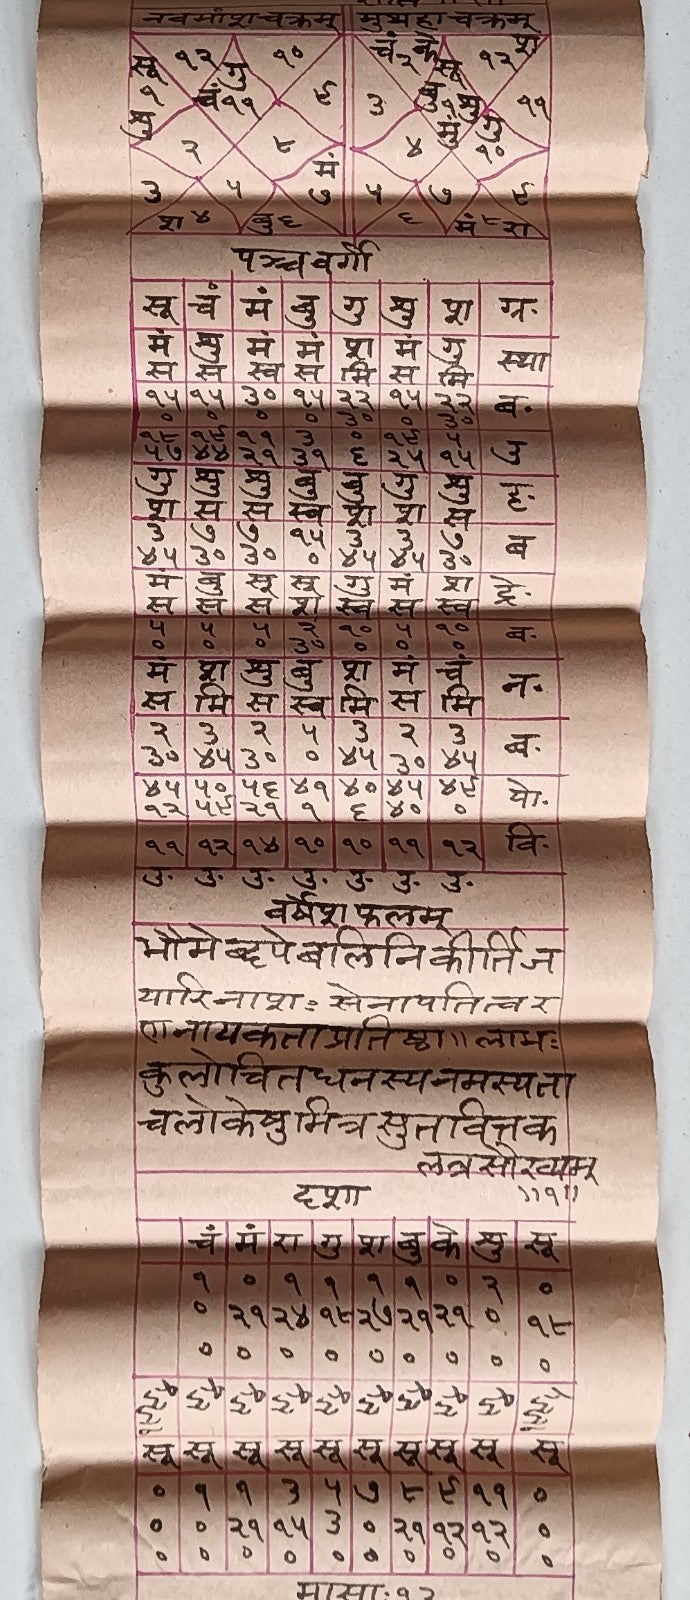 नवमांशचक्रम् मुथहाचक्रम्
सू १२ गु १०
चं के २ सू १२ श
१ चं ११ ९
३ बु १ शु ११
शु २ ८ मं
मं गु ४ १०
३ ५ ७
५ ७ ९
श ४ बु ६
६ मं ८ रा
पञ्चवर्गी
सू चं मं बु गु शु श ग्र॰
मं शु मं मं श मं गु स्था
स स स्व स मि स मि
१५ १५ ३० १५ २२ १५ २२ ब॰
० ० ० ० ३० ० ३०
१८ १९ ११ ३ ० १९ ५ उ
५७ ४४ २१ ३१ ६ २५ १५
गु शु शु बु बु गु शु ह॰
श स स स्व श श स
३ ७ ७ १५ ३ ३ ७ ब
४५ ३० ३० ० ४५ ४५ ३०
मं बु सू सू गु मं श द्रे॰
स स स श स्व स स्व
५ ५ ५ २ १० ५ १० ब॰
० ० ० ३० ० ० ०
मं श शु बु श मं चं न॰
स मि स स्व मि स मि
२ ३ २ ५ ३ २ ३ ब॰
३० ४५ ३० ० ४५ ३० ४५
४५ ५० ५६ ४१ ४० ४५ ४९ यो॰
१२ ५९ २१ १ ६ ४० ०
११ १२ १४ १० १० ११ १२ वि॰
उ॰ उ॰ उ॰ उ॰ उ॰ उ॰ उ॰
वर्षेशफलम्
भौमेब्दपेबलिनिकीर्तिज
यारिनाशः सेनापतित्वर
णनायकताप्रतिष्ठा॥लाभः
कुलोचितधनस्यनमस्यता
चलोकेषुमित्रसुतवित्तक
लत्रसौख्यम्
॥१॥
दशा
चं मं रा गु श बु के शु सू
१ ० १ १ १ १ ० २ ०
० २१ २४ १८ २७ २१ २१ ० १८
० ० ० ० ० ० ० ० ०
सू सू सू सू सू सू सू सू सू सू
० १ १ ३ ५ ७ ८ ९ ११ ०
० ० २१ १५ ३ ० २१ १२ १२ ०
० ० ० ० ० ० ० ० ० ०
मासाः१२